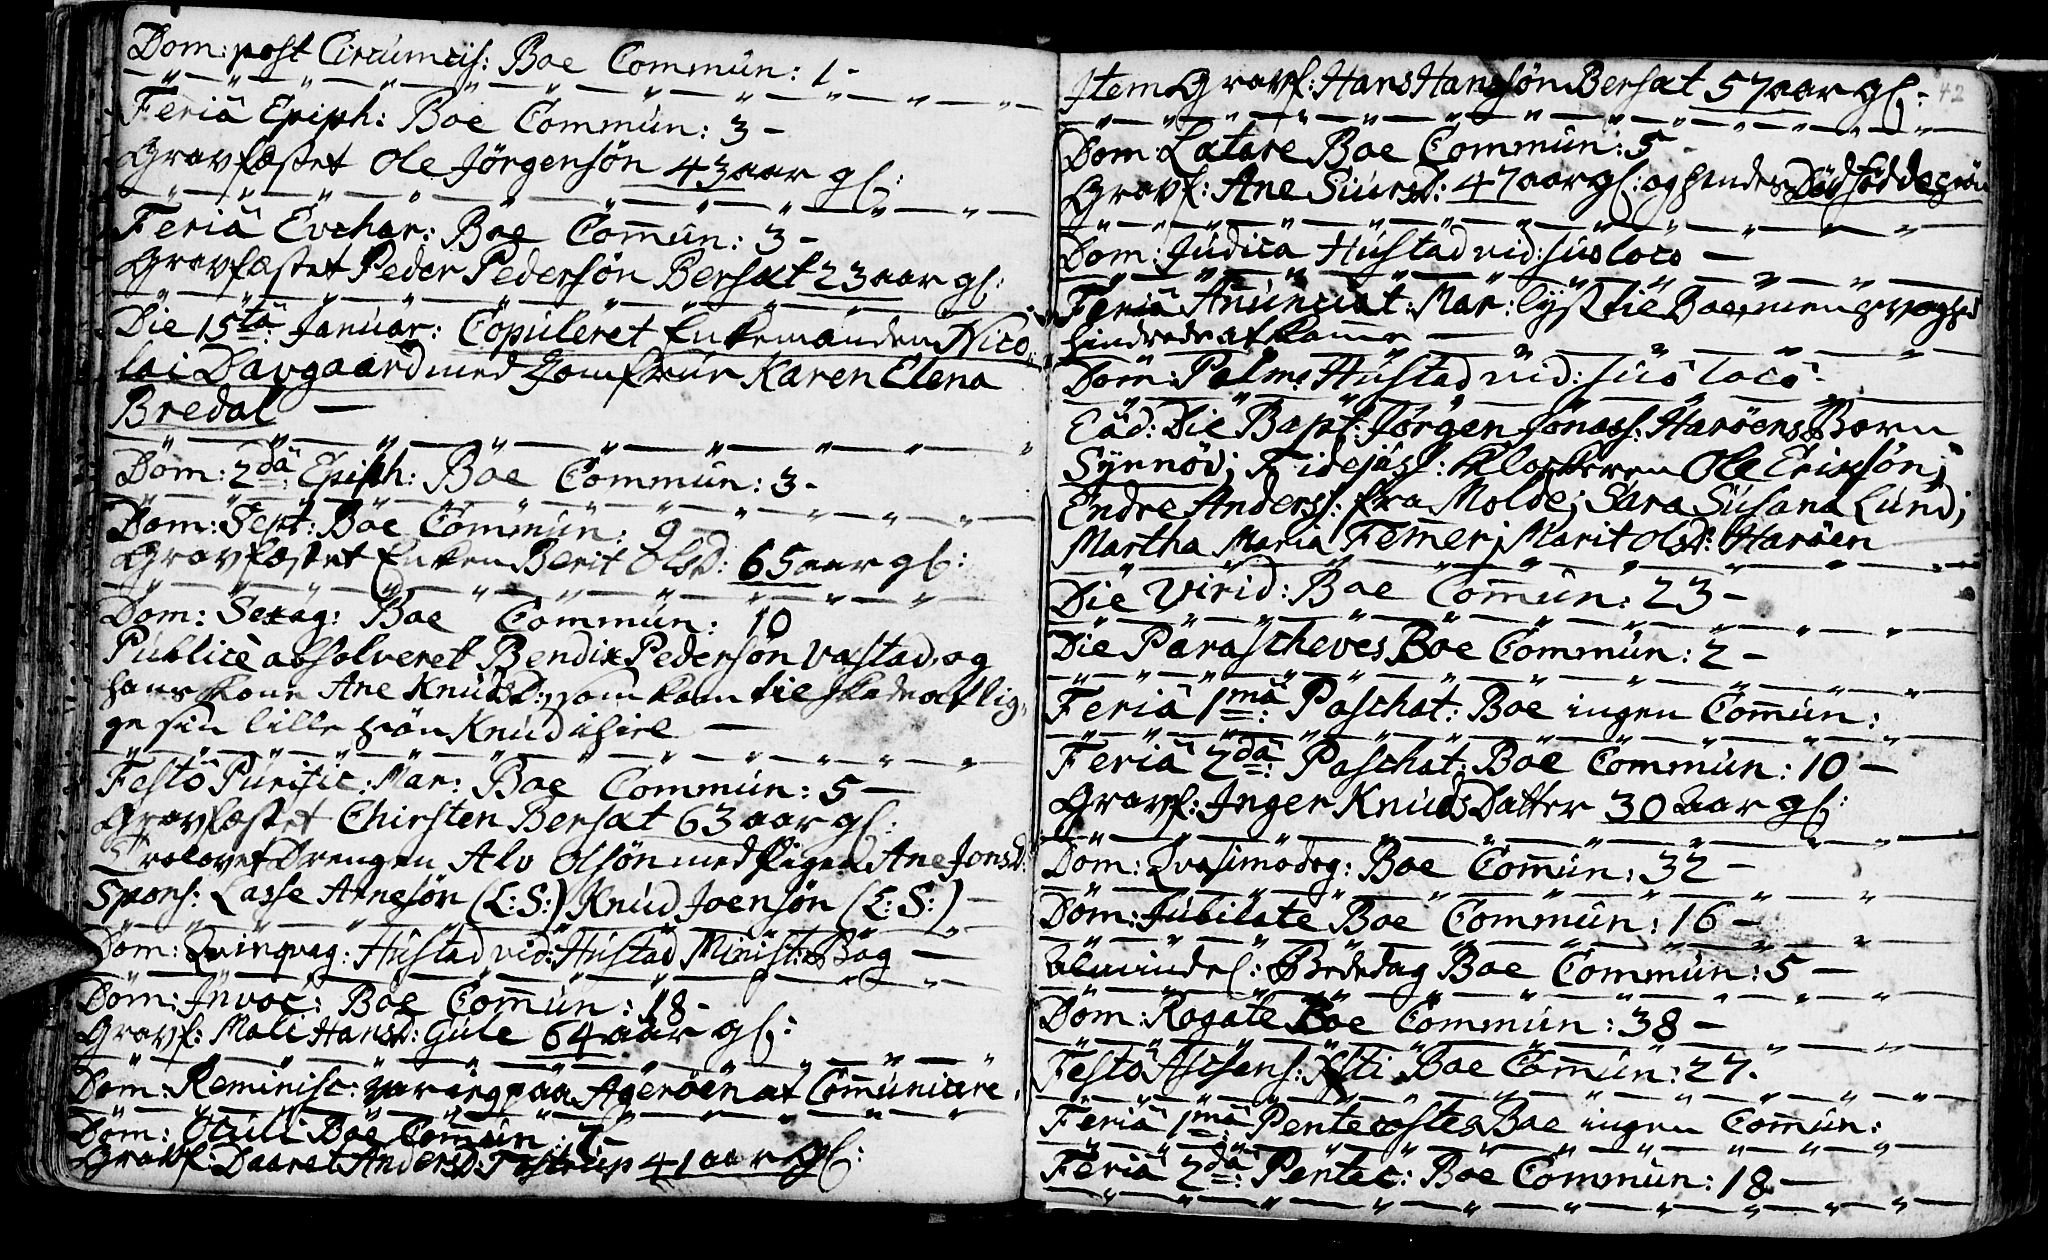 Dom: post Circumcis: Boe Commun: 1 -
Feriâ Epiph: Boe Commun: 3 -
Gravfæstet Ole Jörgensön 43 aar gl:
Feriâ Evchar: Boe Com̅un: 3 -
Gravfæstet Peder Pedersön Bersæt 23 aar gl:
Die 15tâ: Januar: Copuleret Enkemanden Nico-
lai Davgaard med Jomfrur Karen Elena
Bredal —
Dom: 2dâ: Epiph: Boe Commun: 3 -
Dom: Sept: Boe Commun: 9 -
Gravfæstet Enken Berit Olsd: 65 aar gl:
Dom: Sexag: Boe Commun: 10
Publicè absolveret Bendix Pedersön Vastad, og
hans kone Ane Knudsd:, som kom til skade at lig-
ge sin lille Sön Knud ihiel —
Festô Purific: Mar: Boe Commun: 5 —
Gravfæstet Chirsten Bersæt 63 aar gl:
Trolovet Drengen Alv Olsön med Pigen Ane Jonsd:
Spons: Lasse Arnesön (L:S:) Knud Joensön (L:S:) —
Dom: Qvinqvag: Hustad vid: Hustad Minist: Bog —
Dom: Invoc: Boe Com̅un: 18 -
Gravf: Mali Hansd: Gule 64 aar gl:
Dom: Reminisc: var ieg paa Agerøen at Com̅unicere.
Dom: Oculi Boe Com̅un: 7 -
Gravf: Anders: 41 aar gl:
Item Gravf: Hans Hansön Bersæt 57 aar gl: 42
Dom: Lætare Boe Commun: 5 -
Gravf: Ane Siursd: 47 aar gl: og hendes Dödfödde Sön
Dom: Judica Hustad vid: suo loco —
Feriâ An̅unciat: Mar: lyst til Boe, men
hindrede at kom̅e —
Dom: Palm: Hustad vid: suô locô -
Eâd: Die Bapt: Jörgen Jonæs: Haröens Barn
Synnöv; Fidejuss: Klockeren Ole Eriksön;
Endre Anders: fra Molde; Sara Susana Lund;
Martha Maria Femer; Marit Olsd: Haröen
Die Virid: Boe Com̅un: 23 -
Die Parascheves Boe Commun: 2 -
Feriâ 1mâ: Paschat: Boe ingen Com̅un:
Feriâ 2dâ: Paschat: Boe Commun: 10 —
Gravf: Inger Knuds Datter 30 aar gl:
Dom: Qvasimodog: Boe Com̅un: 32 -
Dom: Jubilate Boe Commun: 16 -
Almindel: Bededag Boe Commun: 5 —
Dom: Rogate Boe Commun: 38 -
Festô Ascens: Xsti Boe Com̅un: 27.
Feriâ 1mâ: Pentecostes Boe ingen Com̅un:
Feriâ 2dâ: Pentec: Boe Commun: 18 —